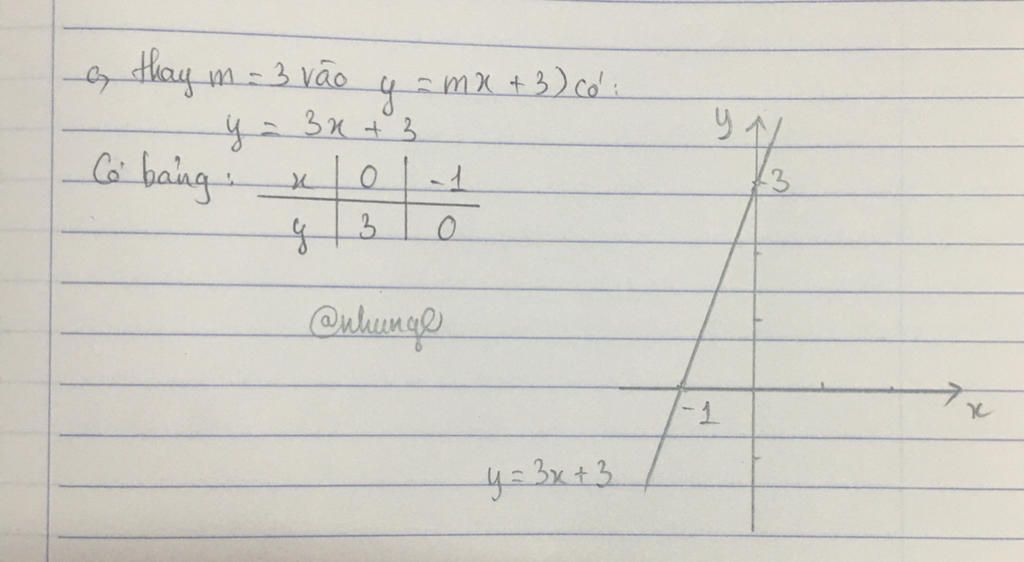 c, thay m = 3 vào y = mx + 3) có:
y = 3x + 3
Có bảng:
x | 0 | -1
y | 3 | 0
@nhungl
y
3
-1
x
y = 3x + 3